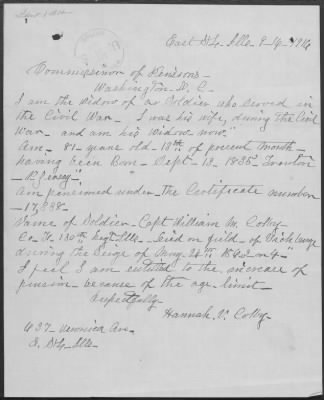 East St L. Ills. 9-14-1916
Commissinor of Pensions-
Washington D. C.
I am the widow of a Soldier who served in
the Civil War. I was his wife, during the Civil
War- and am his widow now"
Am- 81- years old- 13th of present month-
having been Born- Sept- 13- 1835-
N. Jersey"
Am pensioned under- the Certificate number
-17,938-
Name of Soldier- Capt William M. Colby-
Co. 130th Regt Ills- Died on field- of Vicksburg
during the Siege of May-
I feel I am entitled to the increase of
pension- because of the age- limit-
Respectfully-
Hannah. V. Colby-
437- Veronica Ave-
E. St L- Ills-